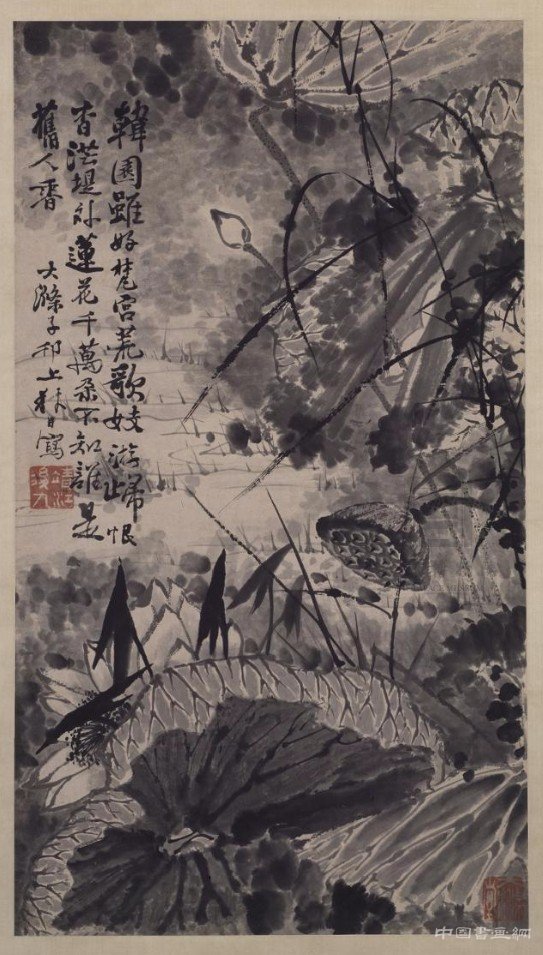 韓園雖好梵宮荒歌妓游歸恨
杳茫堤外蓮花千萬朵不知誰是
舊人香
大滌子邗上秋日寫
中国書画網